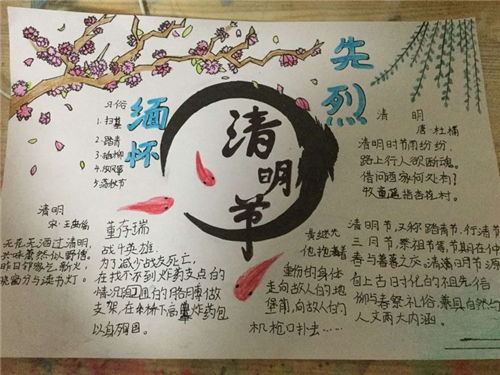 缅怀
先烈
清明节
习俗
1.扫墓
2.踏青
3.插柳
4.放风筝
5.荡秋千
清明
唐 杜牧
清明时节雨纷纷,
路上行人欲断魂。
借问酒家何处有?
牧童遥指杏花村。
清明
宋·王禹偁
无花无酒过清明,
兴味萧然似野僧。
昨日邻家乞新火,
晓窗分与读书灯。
董存瑞
战斗英雄:
为了减少战友死亡,
在找不到炸药支点的
情况
用自己的胳膊做
支架,在桥下
炸药包
以身殉国。
黄继光
他抱着
重伤的身体
走向敌人的地
堡前,向敌人的
机枪口扑去……
清明节,又称踏青节、行清节
三月节、祭祖节等,节期在仲
春与暮春之交。清明节源
自上古时代的祖先信
仰与春祭礼俗,兼具自然与
人文两大内涵。